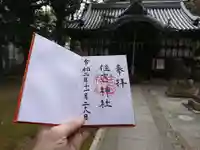 奉拝
住吉神社
令和二年十一月二十八日